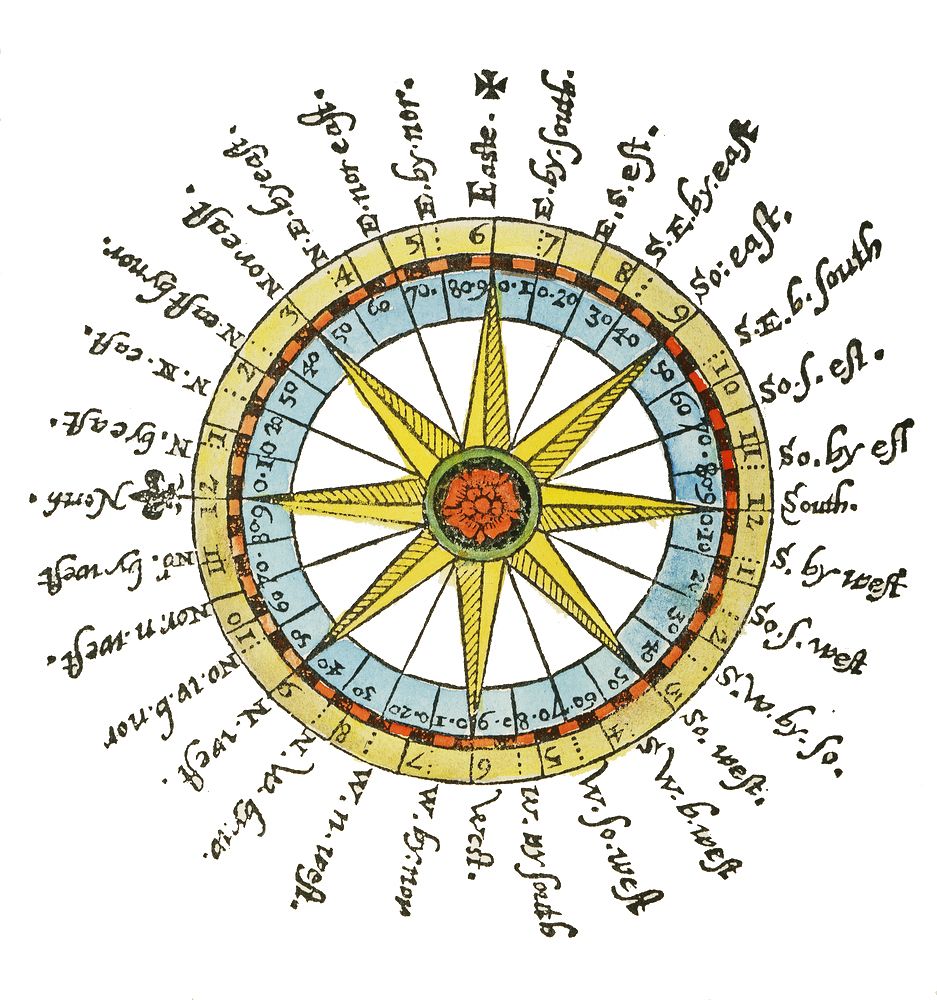 Easte.
E. by. south.
E. s. est.
S. E. by. east
So: east.
S. E. b. south
So. s. est.
So. by est
South.
S. by west
So. s. west
S. w. by. so.
So. west.
S. W. b. west
W. so. west
W. by south
West.
W. by. nor
W. n. west.
N. W. by. w.
N. west.
No. w. b. nor
Nor. n. west.
No. by west
North.
N. by east.
N. N. east.
N. east by nor.
Nor. east.
N. E. by east.
E. nor east.
E. by. nor.
6 7 8 9 10 11 12 1 2 3 4 5 6 7 8 9 10 11 12 1 2 3 4 5
10. 20 30 40 50 60 70. 80. 90
10 20 30 40 50 60 70. 80. 90
10. 20 30 40 50 60 70. 80. 90
10. 20 50 40 50 60 70. 80. 90